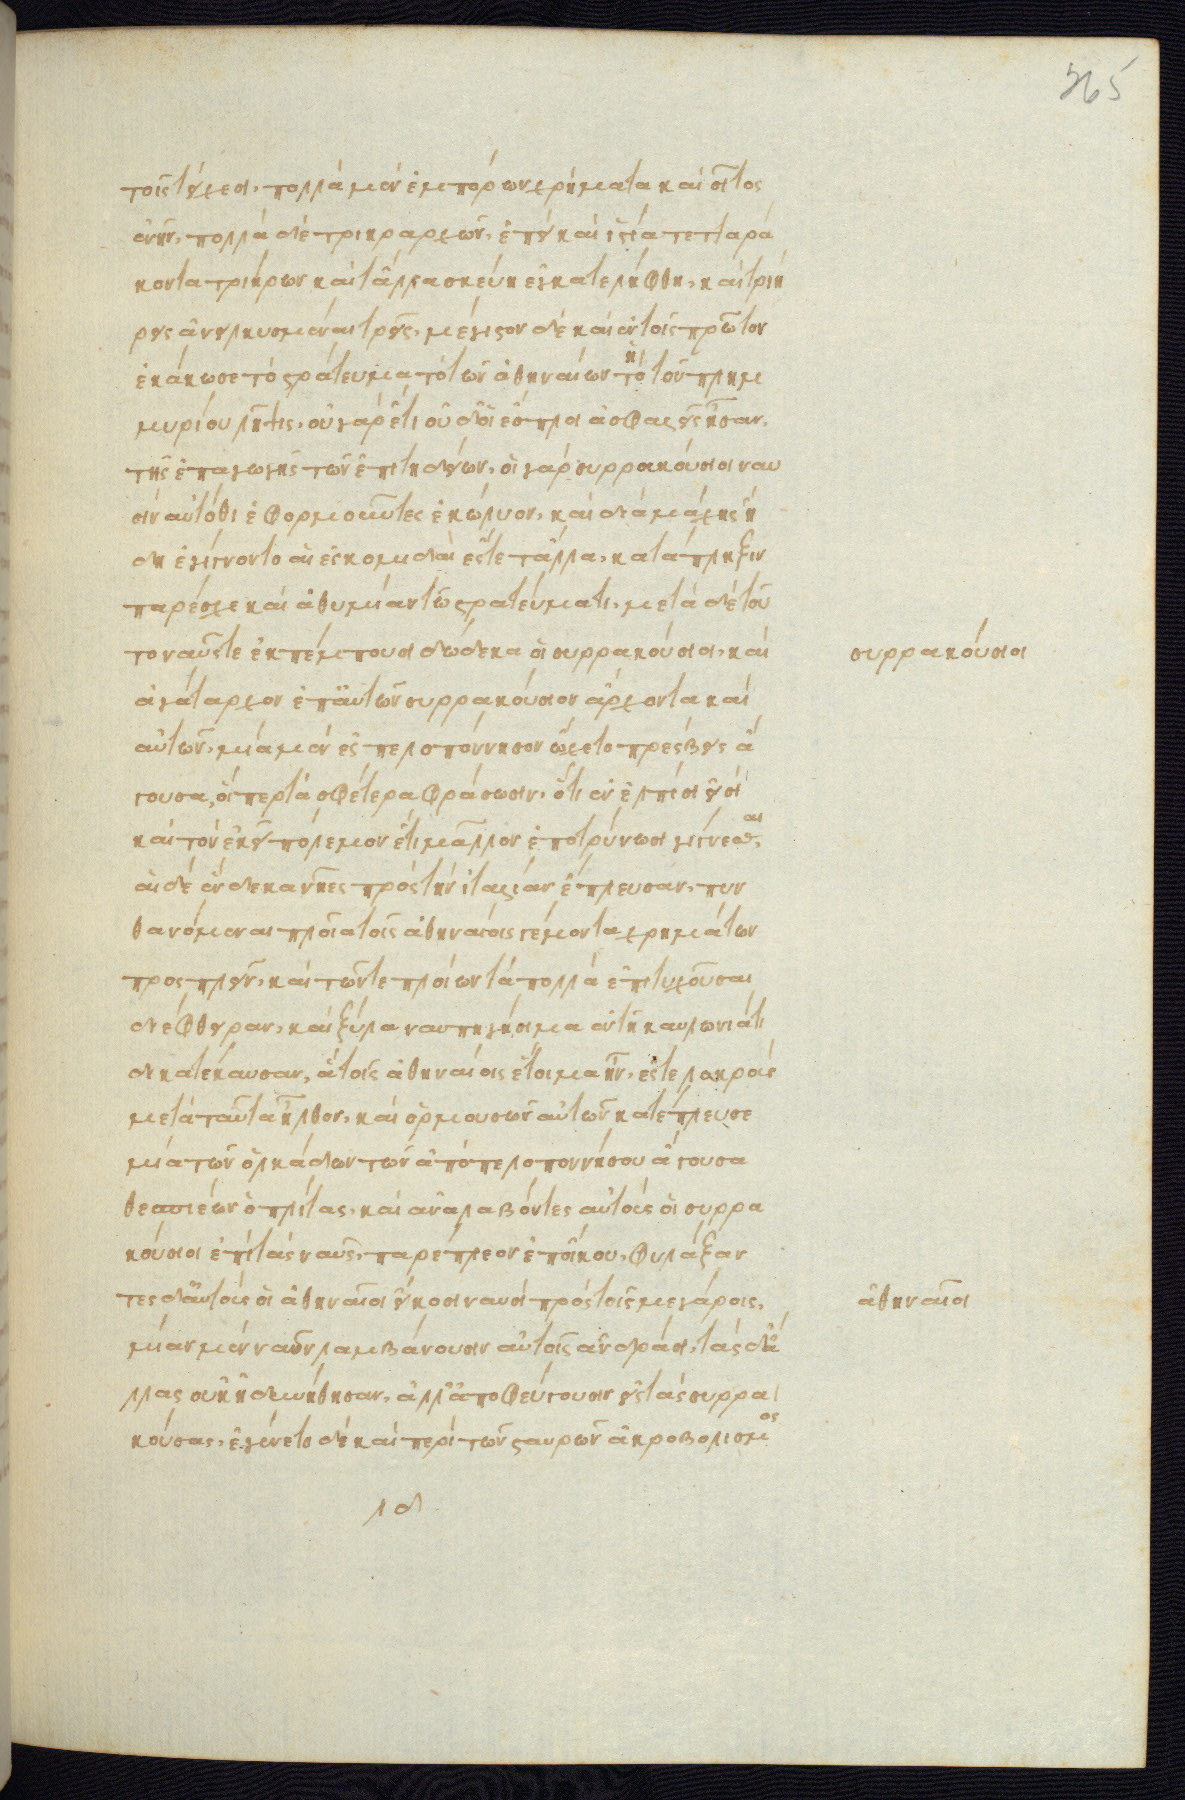 265
τοῖς τείχεσι, πολλὰ μὲν ἐμπόρων χρήματα καὶ σῖτος
ἐνῆν, πολλὰ δὲ τριηράρχων, ἐπεὶ καὶ ἱστία τετταρά
κοντα τριήρων καὶ τἆλλα σκεύη ἐγκατελήφθη, καὶ τριή
ρεις ἀνειλκυσμέναι τρεῖς, μέγιστον δὲ καὶ ἐν τοῖς πρῶτον
ἐκάκωσε τὸ στράτευμα τὸ τῶν ἀθηναίων ἡ τὸ τοῦ πλημ
μυρίου λῆψις, οὐ γὰρ ἔτι οὐδ' οἱ ἔσπλοι ἀσφαλεῖς ἦσαν,
τῆς ἐπαγωγῆς τῶν ἐπιτηδείων, οἱ γὰρ συρρακούσιοι ναυ
σὶν αὐτόθι ἐφορμοῦντες ἐκώλυον, καὶ διὰ μάχης ἤ
δη ἐγίγνοντο αἱ ἐσκομιδαὶ ἔς τε τἆλλα, κατάπληξιν
παρέσχε καὶ ἀθυμίαν τῷ στρατεύματι, μετὰ δὲ τοῦ
το ναῦς τε ἐκπέμπουσι δώδεκα οἱ συρρακούσιοι, καὶ
ἀγάταρχον ἐπ' αὐτῶν συρρακούσιον ἄρχοντα καὶ
αὐτῶν, μία μὲν ἐς πελοπόννησον ᾤχετο πρέσβεις ἄ
γουσα, οἵπερ τὰ σφέτερα φράσωσιν, ὅτι ἐν ἐλπίσι εἰσί
καὶ τὸν ἐκεῖ πόλεμον ἔτι μᾶλλον ἐποτρύνωσι γίγνεσθαι,
αἱ δὲ ἕνδεκα νῆες πρὸς τὴν ἰταλίαν ἔπλευσαν, πυν
θανόμεναι πλοῖα τοῖς ἀθηναίοις γέμοντα χρημάτων
προσπλεῖν, καὶ τῶν τε πλοίων τὰ πολλὰ ἐπιτυχοῦσαι
διέφθειραν, καὶ ξύλα ναυπηγήσιμα ἐν τῇ καυλωνιάτι
δι κατέκαυσαν, ἃ τοῖς ἀθηναίοις ἕτοιμα ἦν, ἔς τε λοκρούς
μετὰ ταῦτα ἦλθον, καὶ ὁρμουσῶν αὐτῶν κατέπλευσε
μία τῶν ὁλκάδων τῶν ἀπὸ πελοποννήσου ἄγουσα
θεσπιέων ὁπλίτας, καὶ ἀναλαβόντες αὐτοὺς οἱ συρρα
κούσιοι ἐπὶ τὰς ναῦς, παρέπλεον ἐπ' οἴκου, φυλάξαν
τες δ' αὐτοὺς οἱ ἀθηναῖοι εἴκοσι ναυσὶ πρὸς τοῖς μεγάροις,
μίαν μὲν ναῦν λαμβάνουσιν αὐτοῖς ἀνδράσι, τὰς δ' ἄ
λλας οὐκ ἠδυνήθησαν, ἀλλ' ἀποφεύγουσιν εἰς τὰς συρρα
κούσας, ἐγένετο δὲ καὶ περὶ τῶν σταυρῶν ἀκροβολισμὸς
συρρακούσιοι
ἀθηναῖοι